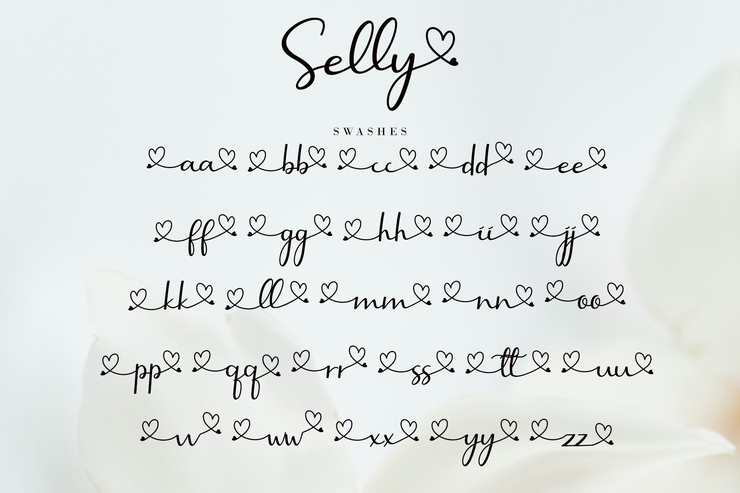 Selly
SWASHES
aa bb cc dd ee
ff gg hh ii jj
kk ll mm nn oo
pp qq rr ss tt uu
vv ww xx yy zz